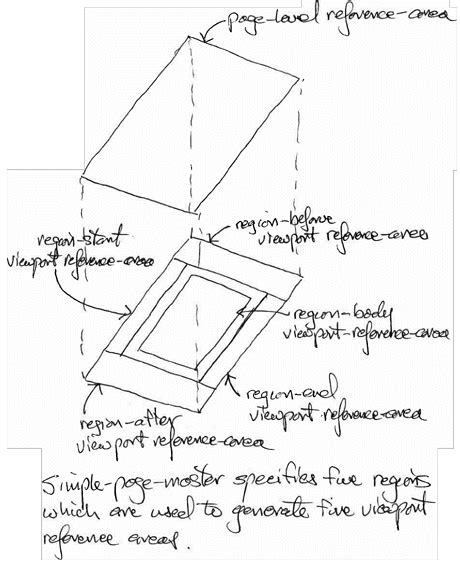 page-level reference-area
region-before
viewport reference-area
region-start
viewport reference-area
region-body
viewport-reference-area
region-end
viewport reference-area
region-after
viewport reference-area
Simple-page-master specifies five regions
which are used to generate five viewport
reference areas.